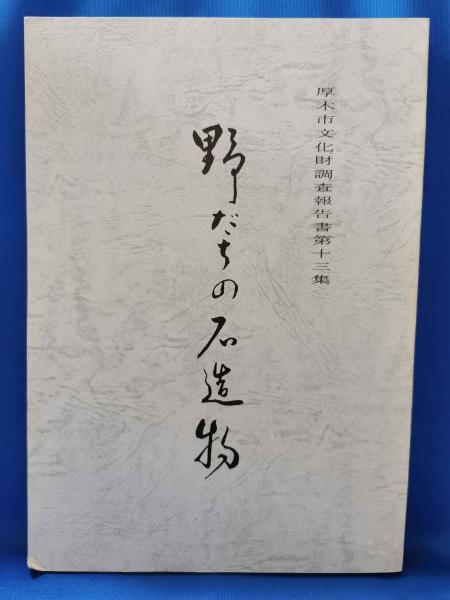 厚木市文化財調査報告書第十三集
野だちの石造物